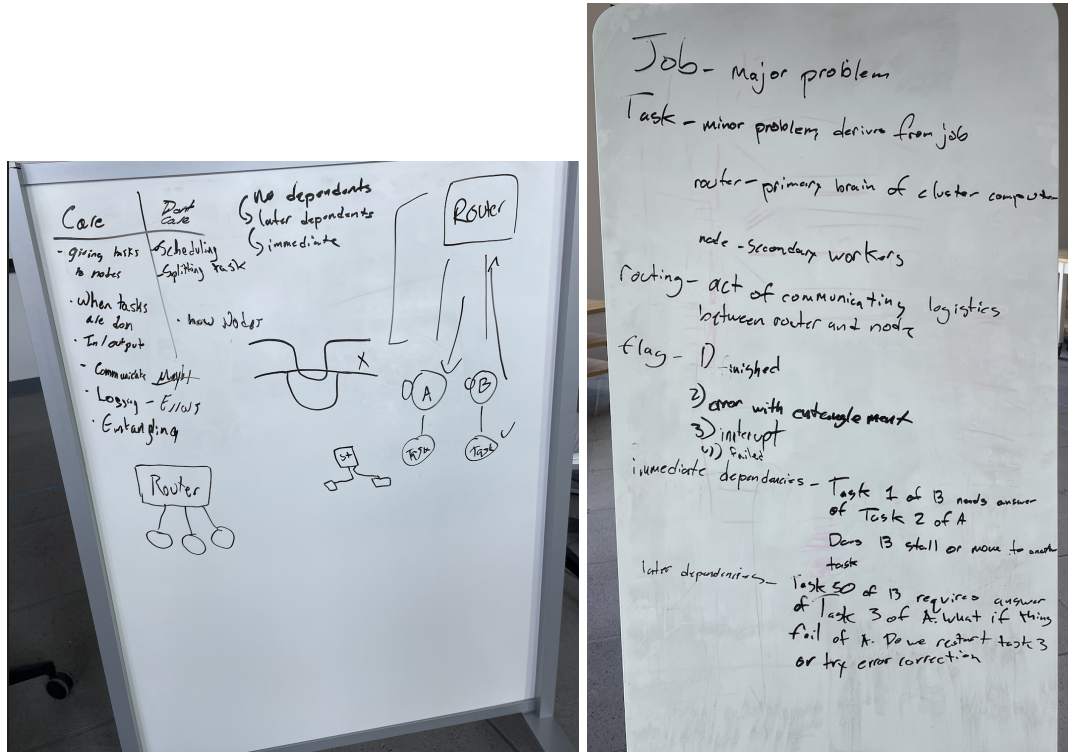 Care
Dont
care
- giving tasks
to nodes
- Scheduling
- Splitting task
• When tasks
are don
• how Nodes
• In/output
- Communicate
• Logging - Errors
• Entangling
no dependents
later dependents
immediate
Router
X
A
B
Task
Task
St
Router
Job - Major problem
Task - minor problem, derive from job
router - primary brain of cluster
node - Secondary workers
routing - act of communicating logistics
between router and node
flag - 1) finished
2) error with entanglement
3) interupt
4) failed
immediate dependancies - Task 1 of B needs answer
of Task 2 of A
Does B stall or move to another
task
later dependencies - Task 50 of B requires answer
of Task 3 of A. What if thing
fail of A. Do we restart task 3
or try error correction